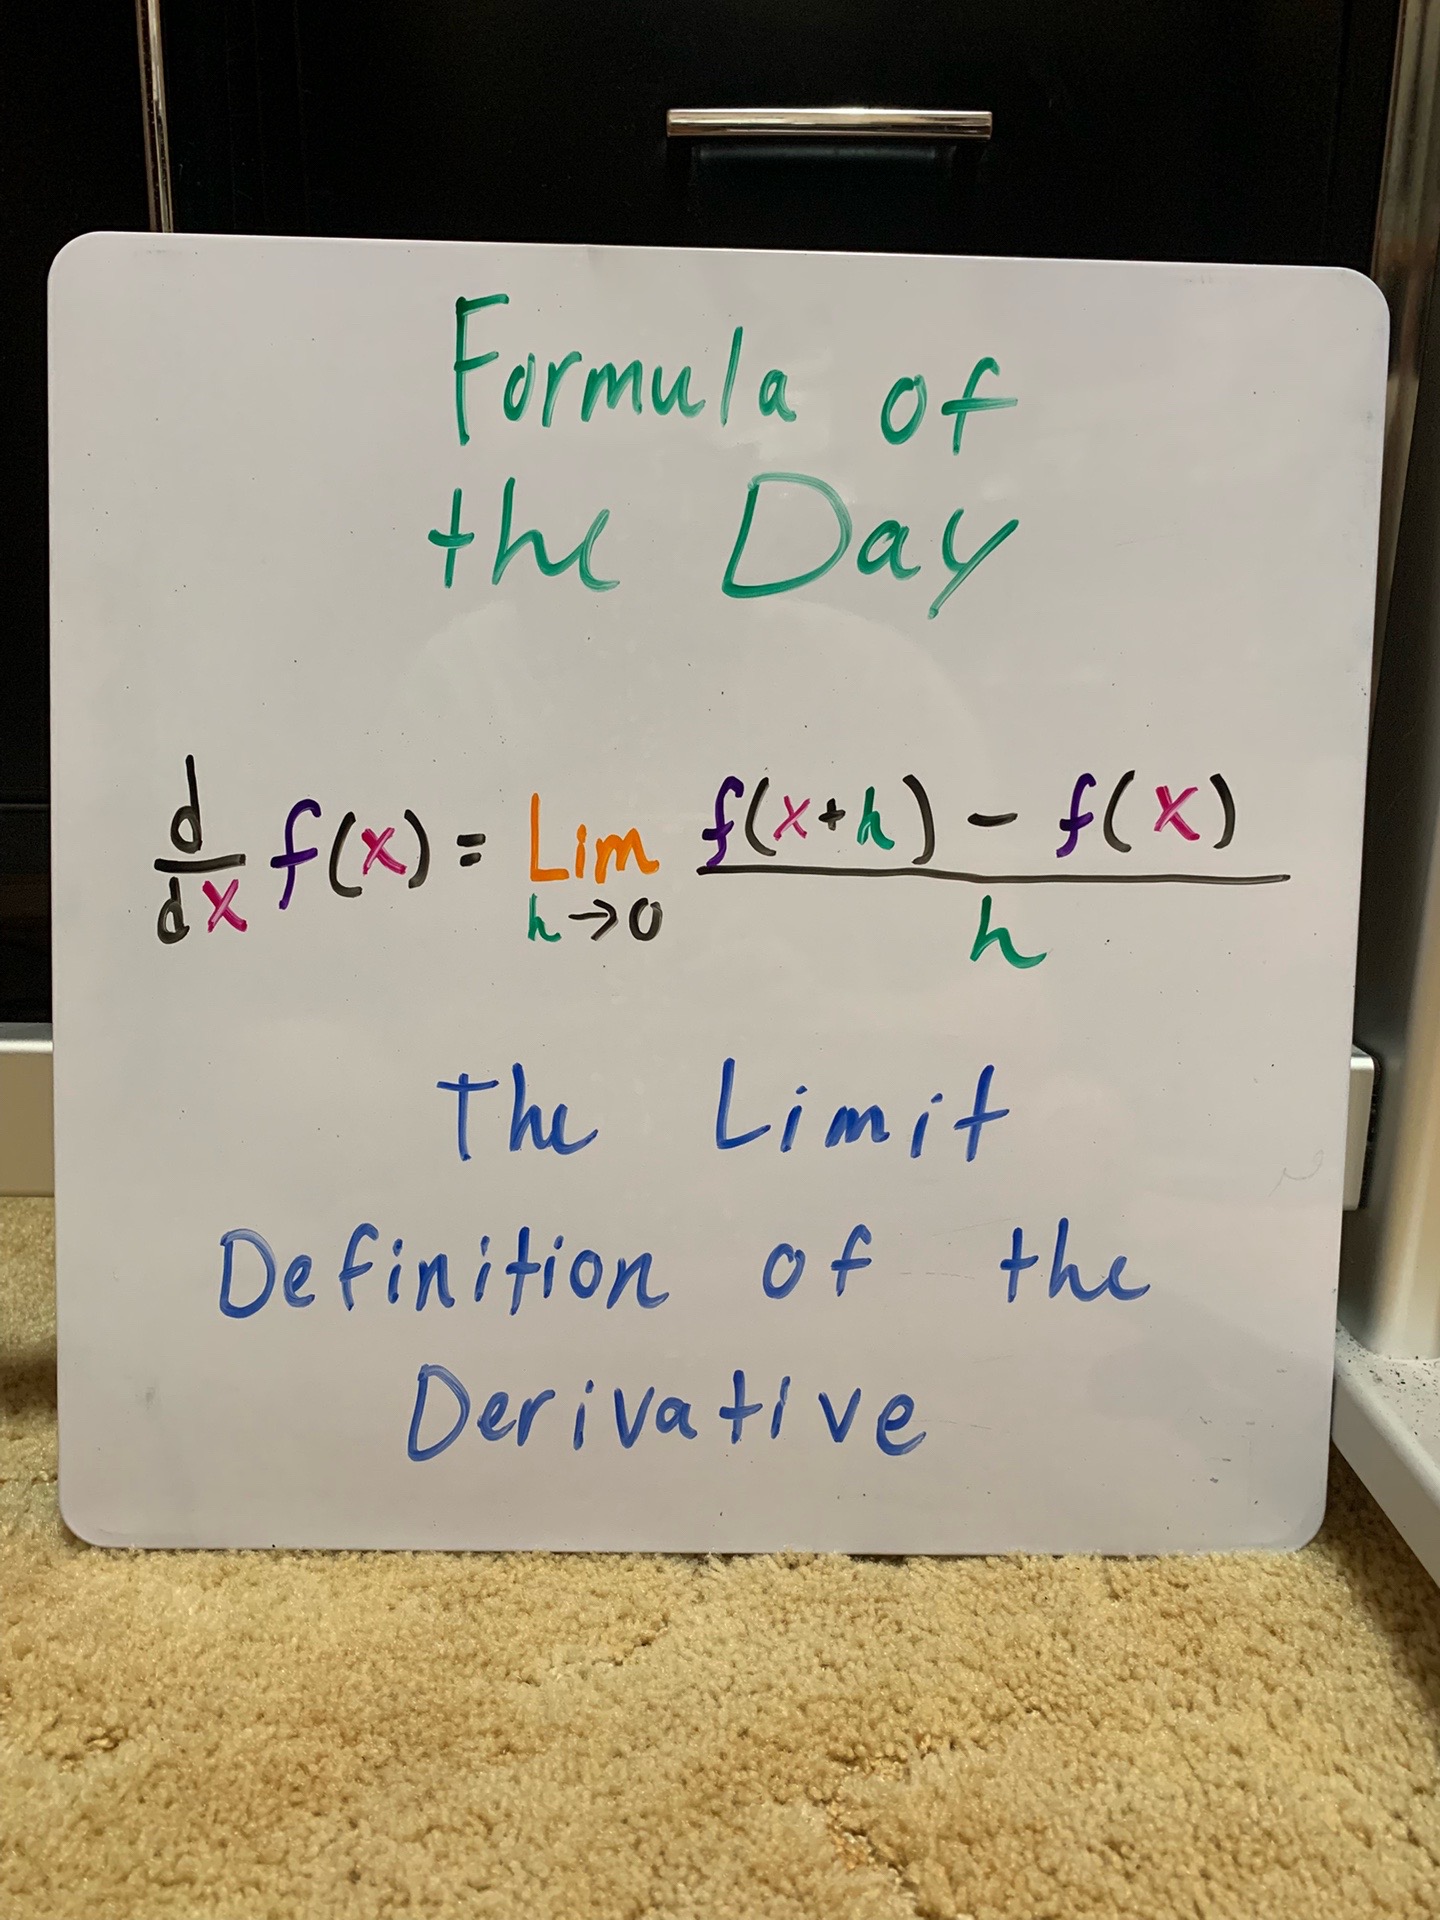 Formula of
the Day
d/dx f(x) = Lim h→0 f(x+h) - f(x) / h
The Limit
Definition of the
Derivative